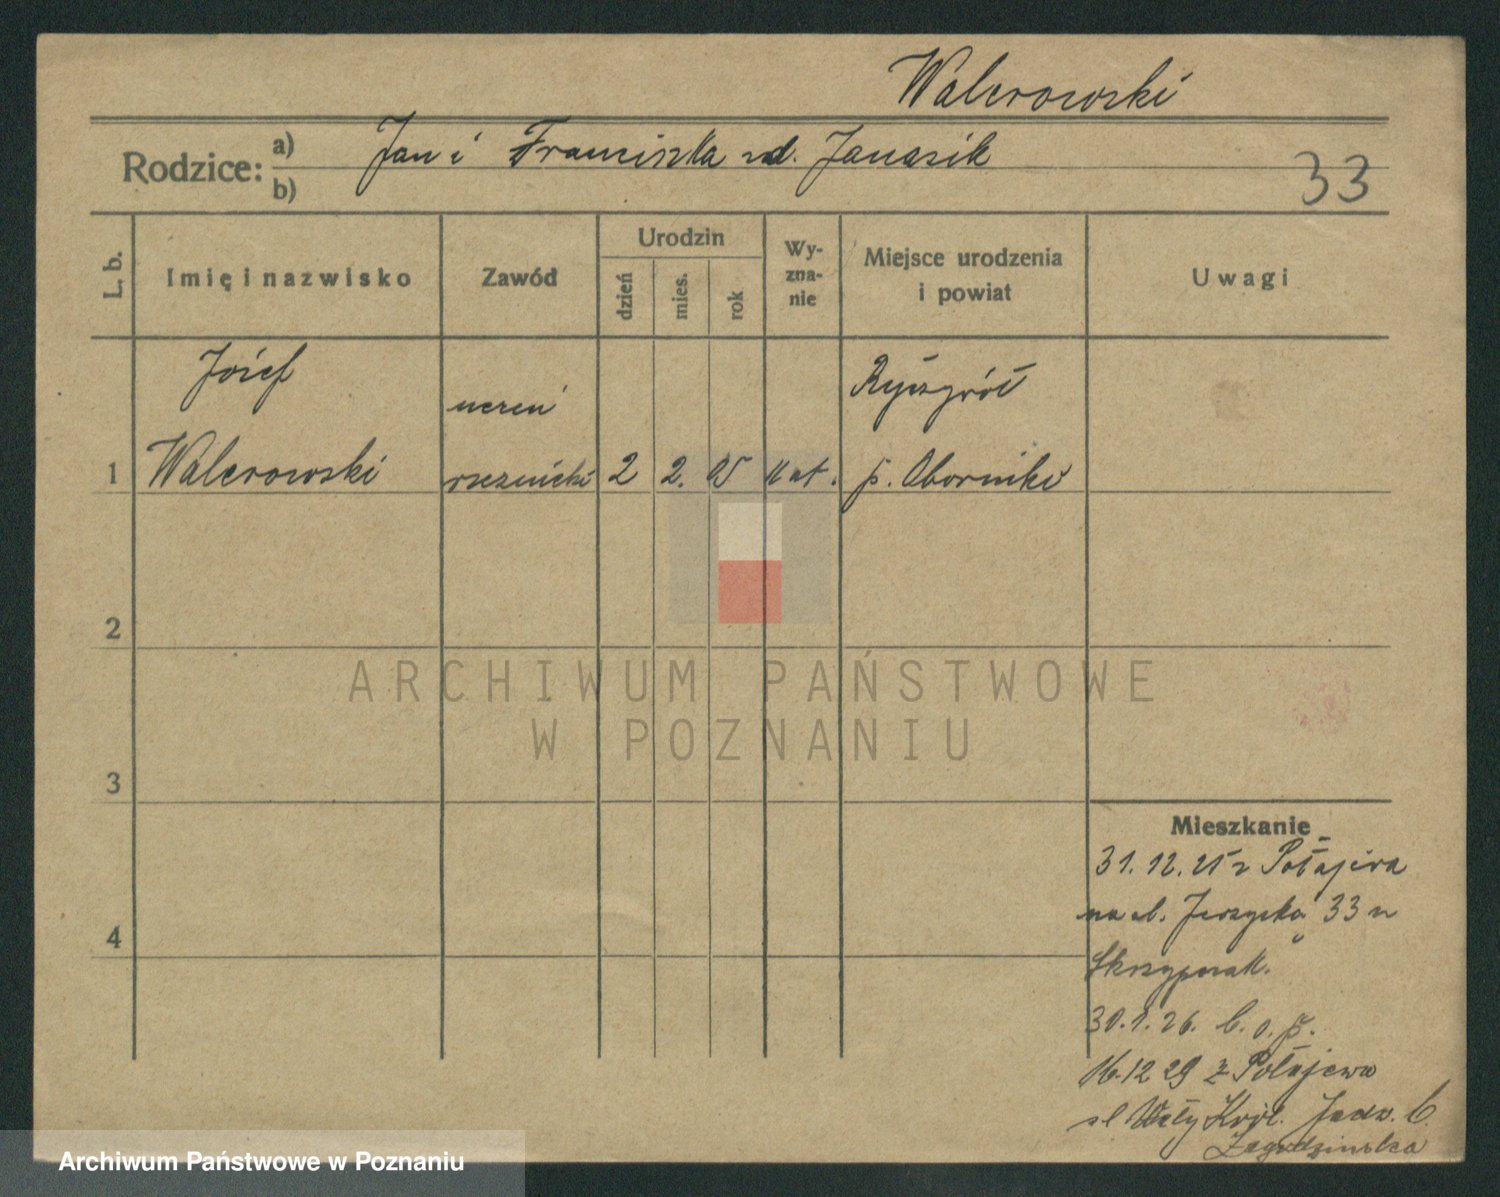 Walerowski
Rodzice: a) Jan i Franciszka zd. Janasik
b)
33
L. b.
Imię i nazwisko
Zawód
Urodzin
dzień
mies.
rok
Wy-
zna-
nie
Miejsce urodzenia
i powiat
Uwagi
Józef
uczeń
Ryczywół
1 Walerowski rzeźnicki 2 2. 05 kat. p. Oborniki
2
ARCHIWUM PAŃSTWOWE
W POZNANIU
3
Mieszkanie
31.12.25 z Połajewa
na ul. Jerzycka 33 u
Skrzypczak.
4
30.1.26. b. o. p.
16.12 29 z Połajewa
ul Wały Król. Jadw. 6
Zagodzinska
Archiwum Państwowe w Poznaniu